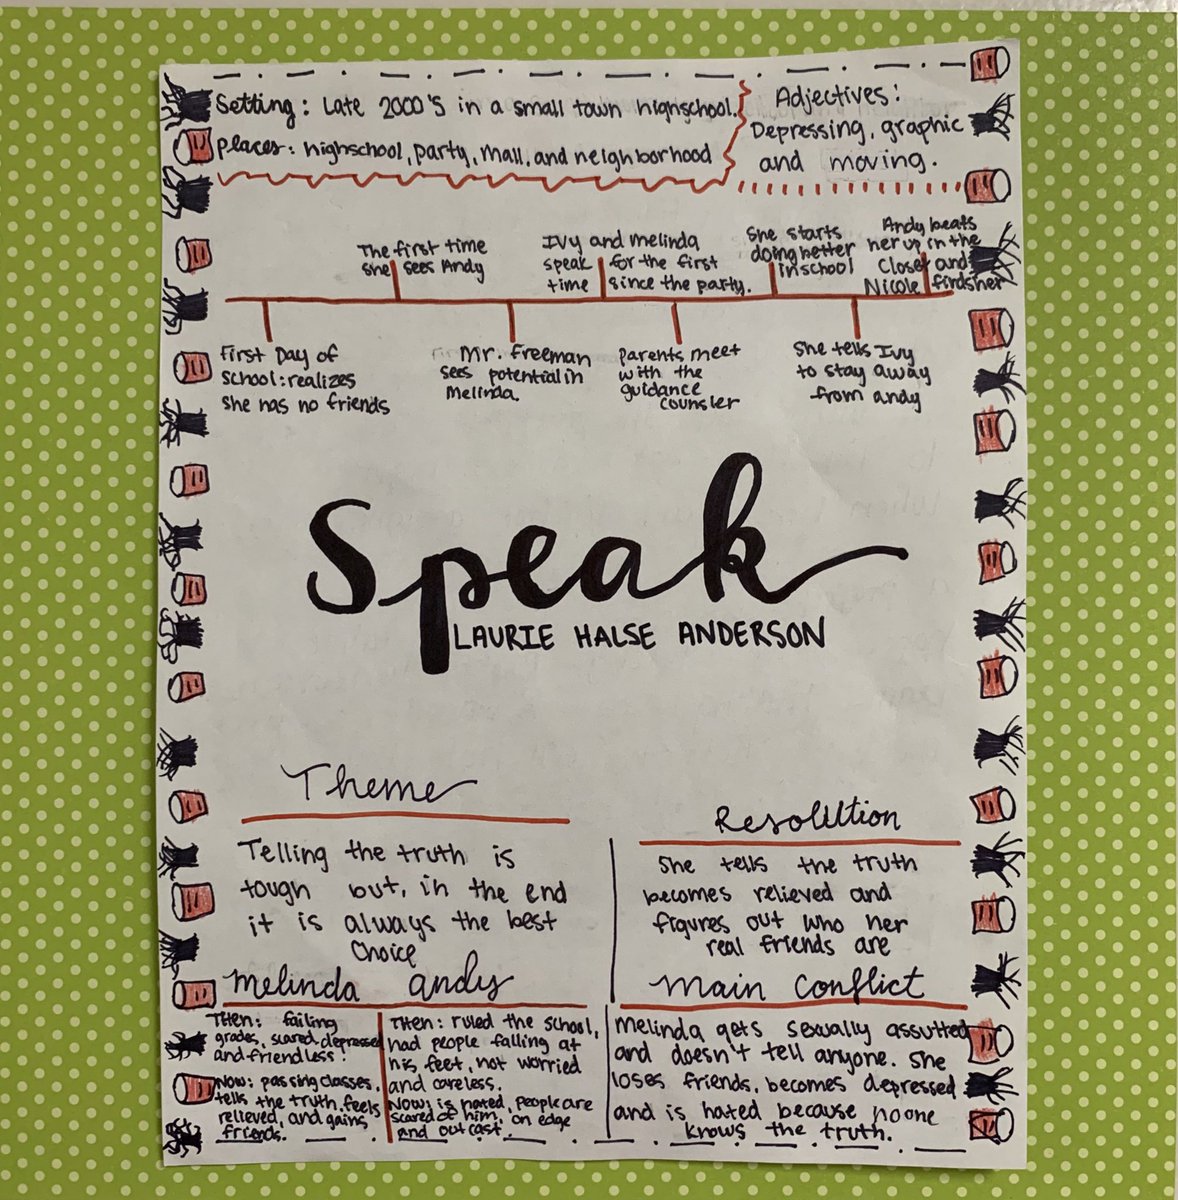 Setting: Late 2000's in a small town highschool.
places: highschool, party, mall, and neighborhood
Adjectives:
Depressing, graphic
and moving.
The first time
she sees Andy
Ivy and melinda
speak for the first
time since the party.
She starts
doing better
in school
Andy beats
her up in the
Closet and
Nicole finds her
First Day of
School: realizes
she has no friends
Mr. Freeman
sees potential in
Melinda.
parents meet
with the
guidance
counsler
She tells Ivy
to stay away
from andy
Speak
LAURIE HALSE ANDERSON
Theme
Telling the truth is
tough but, in the end
it is always the best
Choice
Resolution
She tells the truth
becomes relieved and
figures out who her
real friends are
melinda
THEN: failing
grades, scared, depressed
and friendless!
Now: passing classes,
tells the truth, feels
relieved, and gains
friends.
andy
Then: ruled the school,
had people falling at
his feet, not worried
and careless.
Now: is hated, people are
scared of him, on edge
and outcast.
main conflict
Melinda gets sexually assulted
and doesn't tell anyone. She
loses friends, becomes depressed
and is hated because no one
knows the truth.